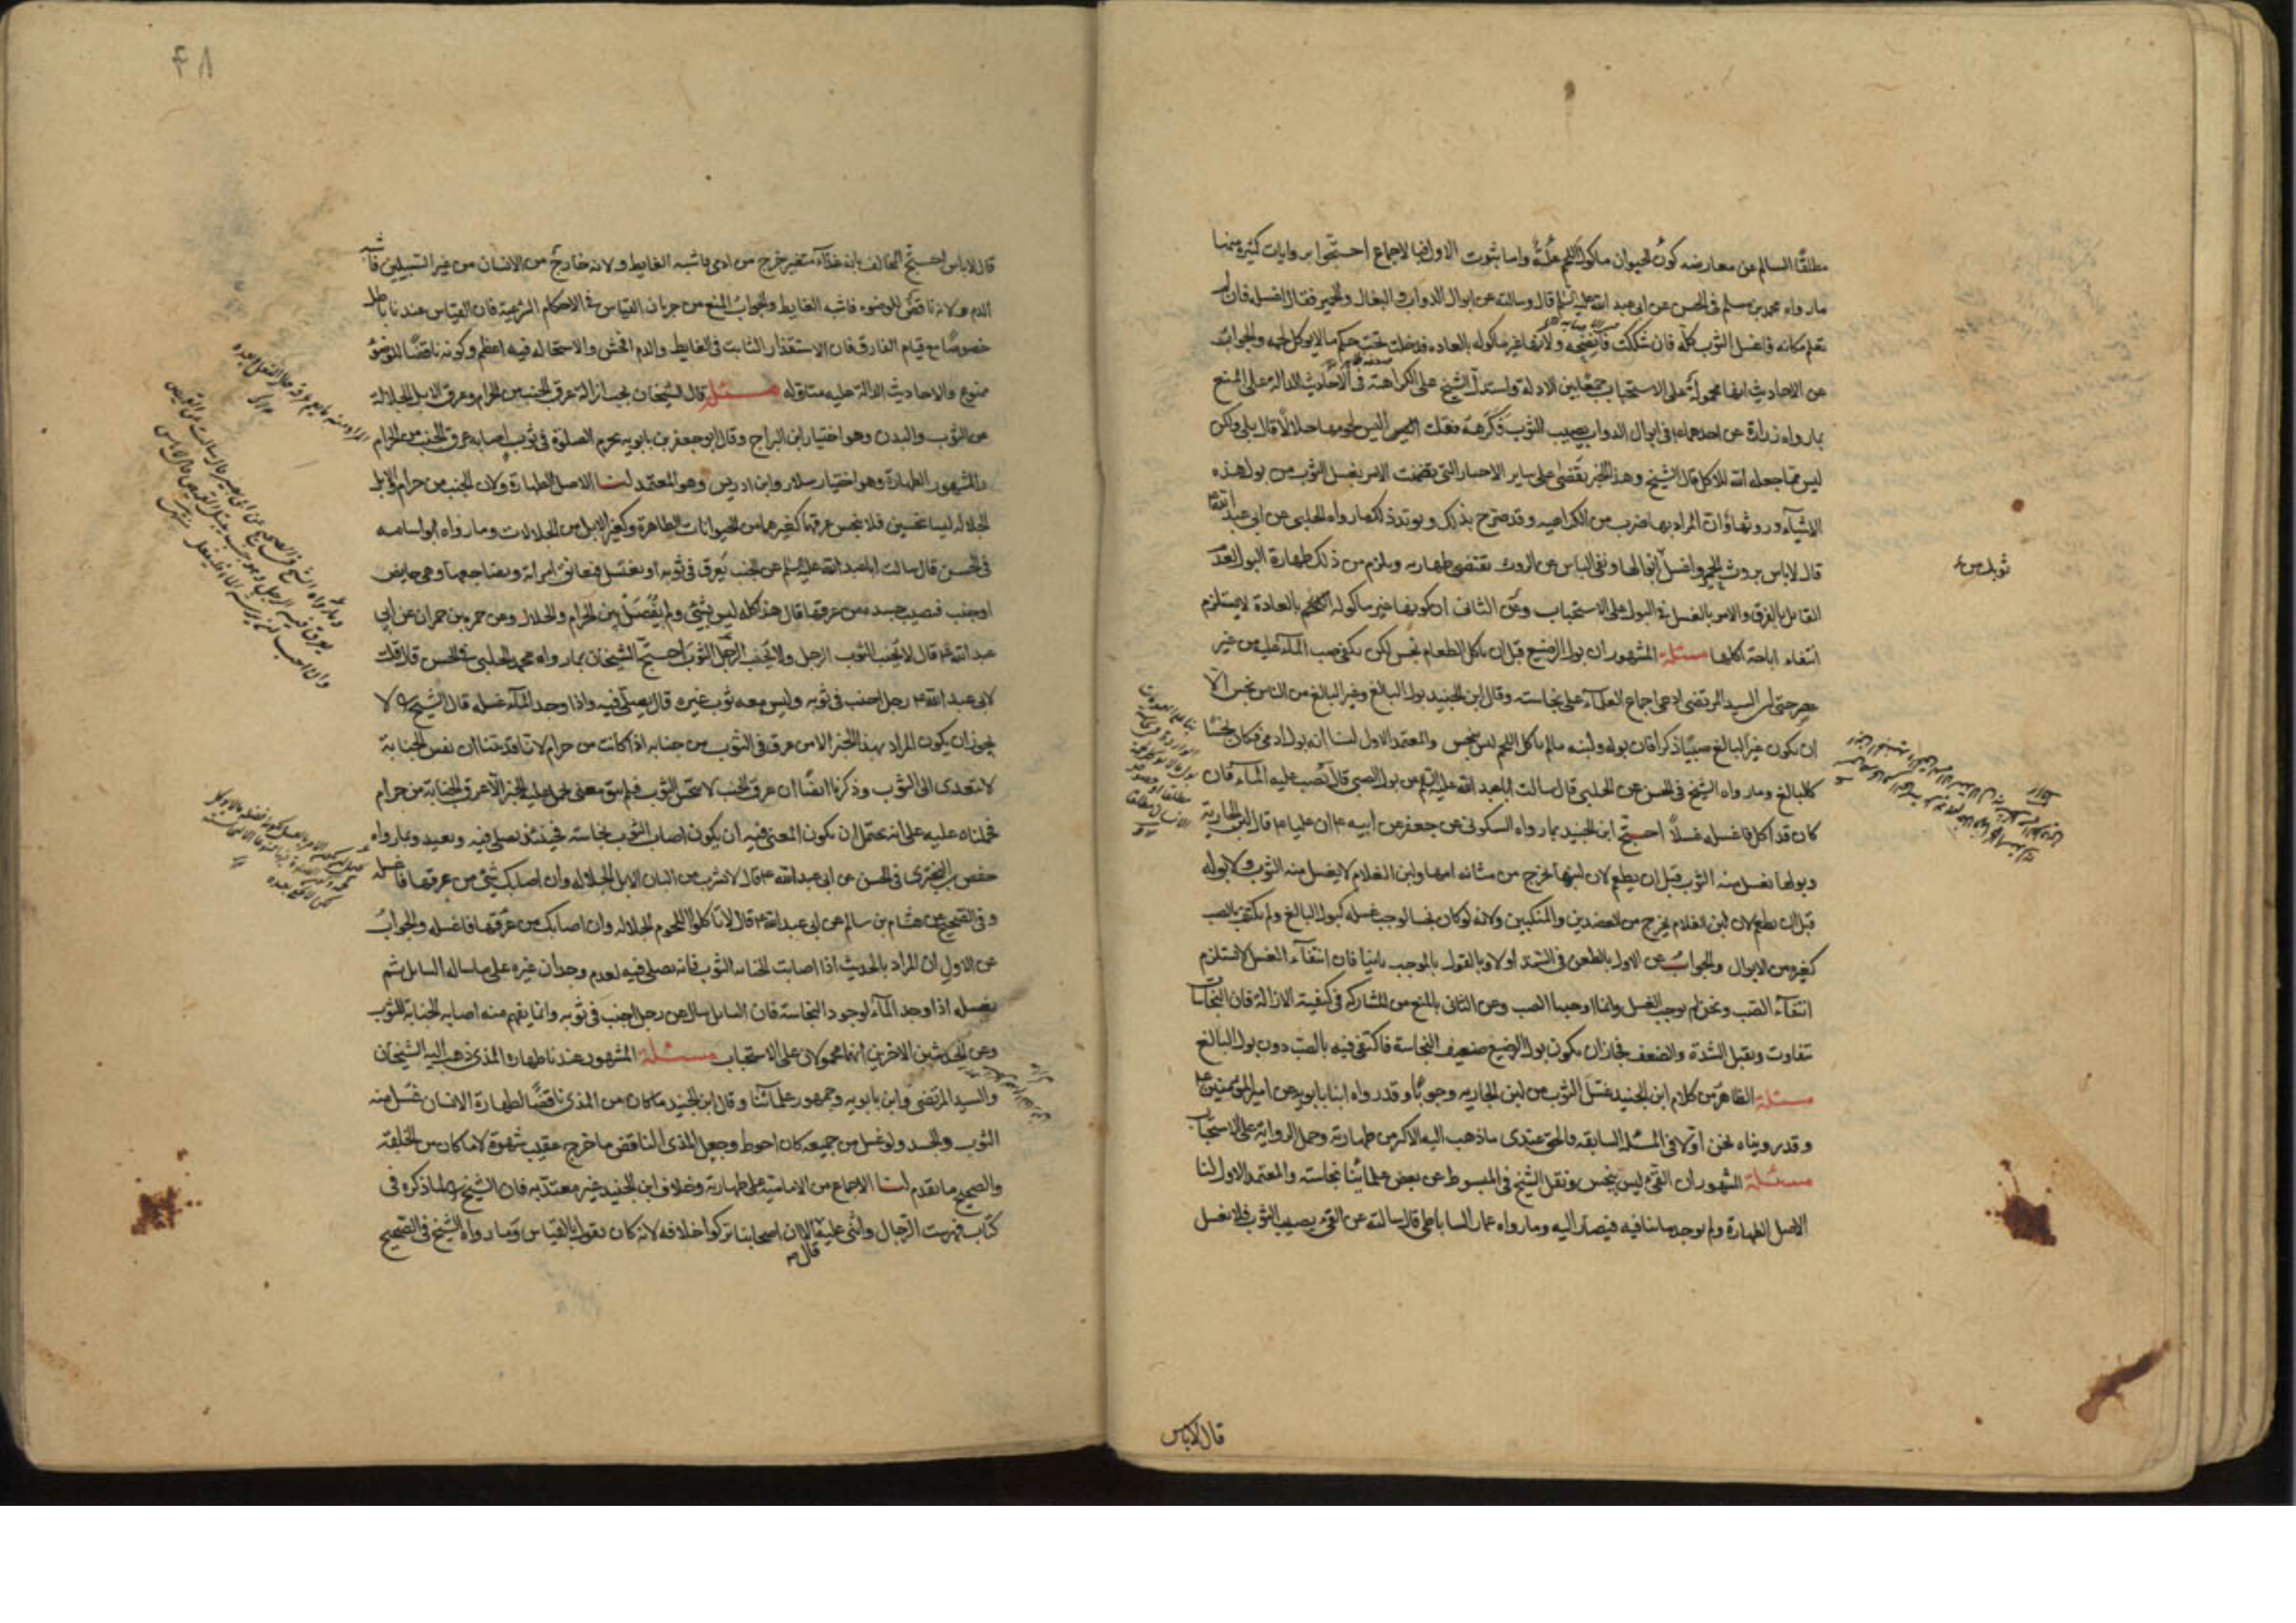 مطلقًا السالم عن معارضه كون الحيوان مأكول اللحم علة واما ثبوت الاولى فبالاجماع احتجوا بروايات كثيرة منها
مارواه محمد بن مسلم فى الحسن عن ابى عبد الله عليه السلم قال وسالته عن ابوال الدواب والبغال والحمير فقال اغسله فان لم
تعلم مكانه فاغسل الثوب كله فان شككت فانضحه ولانها غير مأكوله بالعاده فدخلت تحت حكم مالايوكل لحمه والجواب
عن الاحاديث انها محمولة على الاستحباب جمعًا بين الادلة واستدل الشيخ على الكراهة فى الاحاديث الدالة على المنع
بما رواه زرارة عن احدهما فى ابوال الدواب يصيب الثوب فكرهه فقلت اليس لحومها حلالًا قال بلى ولكن
ليس مما جعله الله للاكل قال الشيخ وهذا الخبر يقضى على ساير الاخبار التى تضمنت الامر بغسل الثوب من بول هذه
الاشياء وروثها وان المراد بها ضرب من الكراهيه وقد صرح بذلك ويؤيد ذلك مارواه الحلبى عن ابى عبد الله
قال لاباس بروث الحمر واغسل ابوالها ونفى الباس عن الروث تقتضى طهارته ويلزم من ذلك طهارة البول لعدم
القائل بالفرق والامر بالغسل فى البول على الاستحباب وعن الثانى ان كونها غير مأكوله اللحم بالعادة لايستلزم
انتفاء اباحة اكلها مسئلة المشهور ان بول الرضيع قبل ان ياكل الطعام نجس لكن يكفى صب الماء عليه من غير
عصر حتى ان السيد المرتضى ادعى اجماع العلماء على نجاسته وقال ابن الجنيد بول البالغ وغير البالغ من الناس نجس الا
ان يكون غير البالغ صبيًا ذكرا فان بوله ولبنه مالم ياكل اللحم ليس بنجس والمعتمد الاول لنا انه بول آدمى فكان نجسًا
كالبالغ ومارواه الشيخ فى الحسن عن الحلبى قال سالت اباعبد الله عليه السلم عن بول الصبى قال تصب عليه الماء فان
كان قد اكل فاغسله غسلًا احتج ابن الجنيد بما رواه السكونى عن جعفر عن ابيه ان عليا قال لبن الجارية
وبولها تغسل منه الثوب قبل ان يطعم لان لبنها يخرج من مثانه امها ولبن الغلام لايغسل منه الثوب ولا بوله
قبل ان يطعم لان لبن الغلام يخرج من العضدين والمنكبين ولانه لو كان نجسا لوجب غسله كبول البالغ ولم يكتف بالصب
كغيره من الابوال والجواب عن الاول بالطعن فى السند اولا وبالقول بالموجب ثانيا فان انتفاء الغسل لايستلزم
انتفاء الصب ونحن لم نوجب الغسل وانما اوجبنا الصب وعن الثانى بالمنع من المشاركة فى كيفية الازالة فان النجاسات
تتفاوت وتقبل الشدة والضعف فجاز ان يكون بول الرضيع ضعيف النجاسة فاكتفى فيه بالصب دون بول البالغ
مسئلة الظاهر من كلام ابن الجنيد غسل الثوب من لبن الجاريه وجوبًا وقد رواه ابنا بابويه عن امير المؤمنين
وقد رويناه نحن اولا فى المسئلة السابقه والحق عندى ماذهب اليه الاكثر من طهارته وحمل الرواية على الاستحباب
مسئلة المشهور ان القئ ليس بنجس ونقل الشيخ فى المبسوط عن بعض علمائنا نجاسته والمعتمد الاول لنا
الاصل الطهارة ولم يوجد ماينافيه فيصار اليه ومارواه عمار الساباطى قال سالته عن القئ يصيب الثوب فلايغسل
قال لاباس
قال لاباس احتج المخالف بانه غذاء متغير خرج من ادمى فاشبه الغايط ولانه خارج من الانسان من غير السبيلين فاشبه
الدم ولانه ناقض للوضوء فاشبه الغايط والجواب المنع من جريان القياس فى الاحكام الشرعية فان القياس عندنا باطل
خصوصًا مع قيام الفارق فان الاستقذار الثابت فى الغايط والدم افحش والاستحاله فيه اعظم وكونه ناقضًا للوضوء
ممنوع والاحاديث الدالة عليه متاوله مسئلة قال الشيخان يجب ازالة عرق الجنب من الحرام وعرق الابل الجلالة
عن الثوب والبدن وهو اختيار ابن البراج وقال ابو جعفر بن بابويه يحرم الصلوة فى ثوب اصابه عرق الجنب من الحرام
والمشهور الطهارة وهو اختيار سلار وابن ادريس وهو المعتمد لنا الاصل الطهارة ولان الجنب من حرام والابل
الجلاله ليسا نجسين فلاينجس عرقهما كغيرهما من الحيوانات الطاهرة وكغير الابل من الجلالات ومارواه ابو اسامه
فى الحسن قال سالت اباعبد الله عليه السلم عن الجنب يعرق فى ثوبه او يغتسل فيعانق امراته ويضاجعها وهى حايض
او جنب فيصيب جسده من عرقها قال هذا كله ليس بشئ ولم يفصل بين الحرام والحلال وعن حمزه بن حمران عن ابى
عبد الله قال لايجنب الثوب الرجل ولايجنب الرجل الثوب احتج الشيخان بما رواه محمد الحلبى فى الحسن قال قلت
لابى عبد الله رجل اجنب فى ثوبه وليس معه ثوب غيره قال يصلى فيه واذا وجد الماء غسله قال الشيخ لا
يجوز ان يكون المراد بهذا الخبر الا من عرق فى الثوب من جنابه اذا كانت من حرام لانا قد بينا ان نفس الجنابة
لاتتعدى الى الثوب وذكرنا ايضًا ان عرق الجنب لاينجس الثوب فلم يبق معنى يحمل عليه الخبر الا عرق الجنابة من حرام
فحملناه عليه على انه يحتمل ان يكون المعنى فيه ان يكون اصاب الثوب نجاسة فحينئذ يصلى فيه ويعيد وبما رواه
حفص بن البخترى فى الحسن عن ابى عبد الله قال لاتشرب من البان الابل الجلاله وان اصابك شئ من عرقها فاغسله
وفى الصحيح عن هشام بن سالم عن ابى عبد الله قال لاتاكلوا اللحوم الجلاله وان اصابك من عرقها فاغسله والجواب
عن الاول ان المراد بالحديث اذا اصابت الجنابه الثوب فانه يصلى فيه لعدم وجدان غيره على ماساله السايل ثم
يغسله اذا وجد الماء لوجود النجاسة فان السايل سال عن رجل اجنب فى ثوبه وانما يفهم منه اصابه الجنابة للثوب
وعن الحديثين الاخرين انهما محمولان على الاستحباب مسئلة المشهور عندنا طهارة المذى ذهب اليه الشيخان
والسيد المرتضى وابن بابويه وجمهور علمائنا وقال ابن الجنيد ماكان من المذى ناقضًا لطهارة الانسان غسل منه
الثوب والجسد ولو غسل من جميعه كان احوط وجعل المذى الناقض ماخرج عقيب شهوة لا ماكان من الخلقة
والصحيح ماتقدم لنا الاجماع من الامامية على طهارته وخلاف ابن الجنيد غير معتد به فان الشيخ لما ذكره فى
كتاب فهرست الرجال واثنى عليه قال الا ان اصحابنا تركوا خلافه لانه كان يقول بالقياس ومارواه الشيخ فى الصحيح